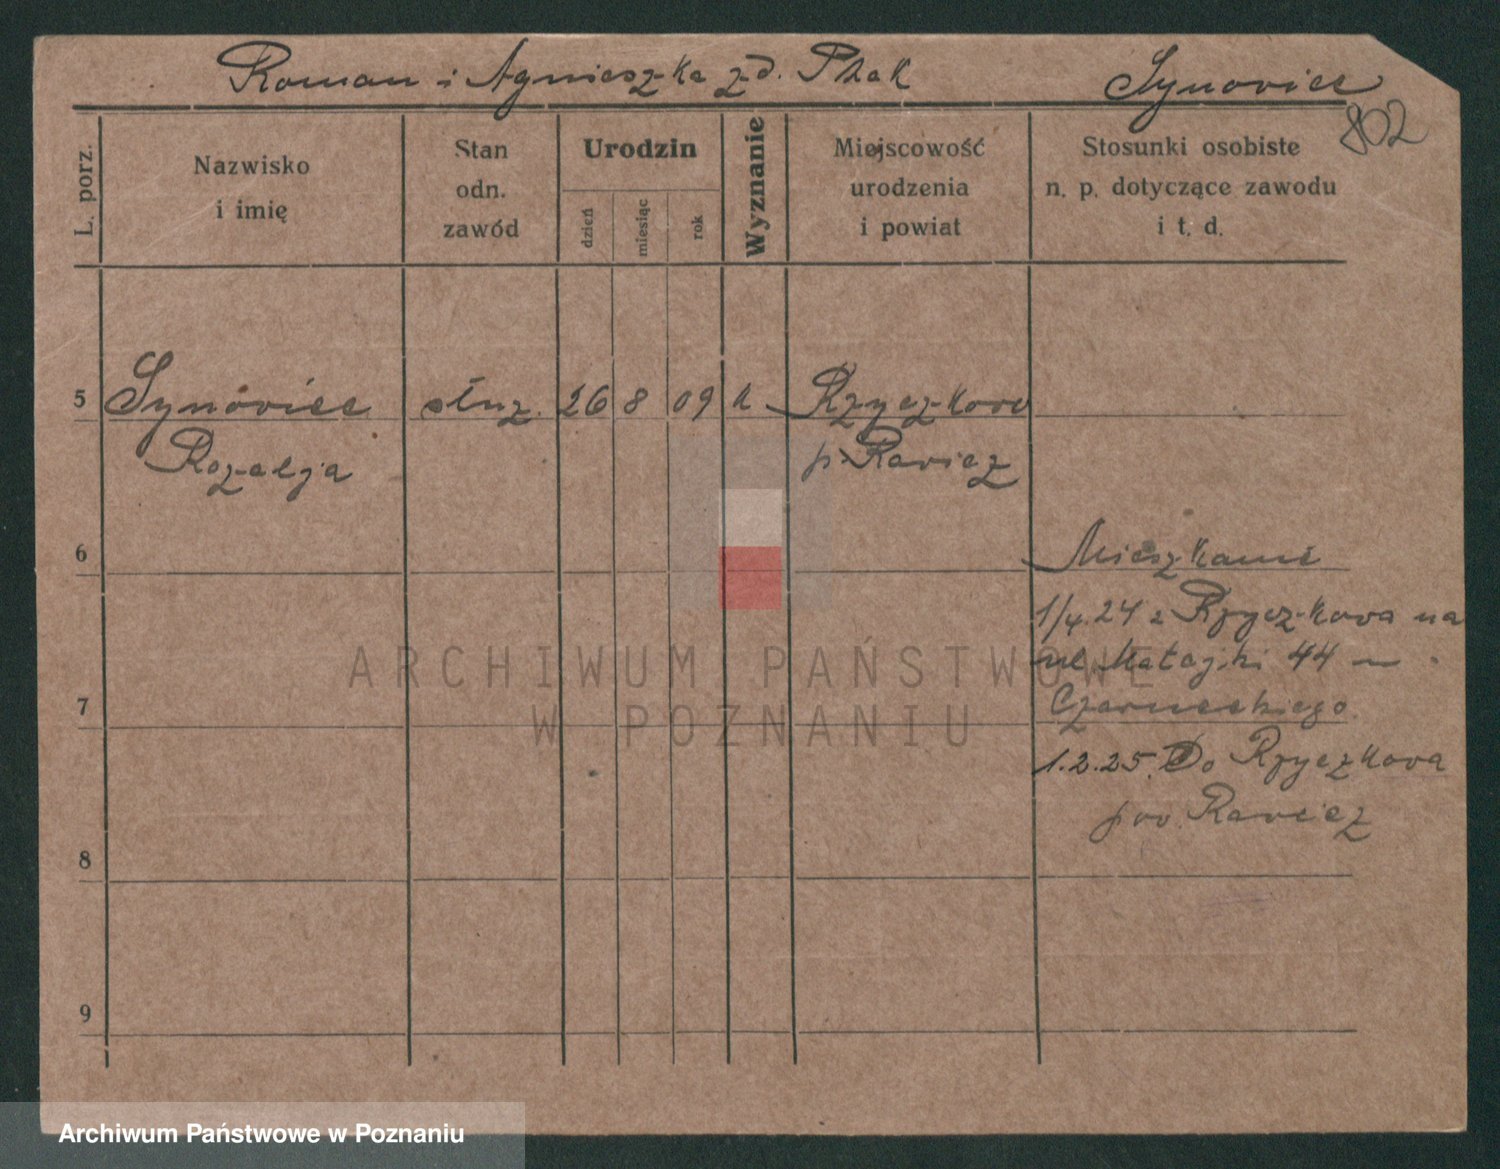 Roman i Agnieszka z d. Ptak Synoviec
802
L. porz.
Nazwisko
i imię
Stan
odn.
zawód
Urodzin
dzień
miesiąc
rok
Wyznanie
Miejscowość
urodzenia
i powiat
Stosunki osobiste
n. p. dotyczące zawodu
i t. d.
5 Synoviec służ. 26 8 09 k Rzyczkovo
Rozalja p. Ravicz
6 Mieszkanie
1/4.24 z Rzyczkova na
ul. Matejki 44 
7 Czarneckiego
1.2.25. Do Rzyczkova
pov. Ravicz
8
9
ARCHIWUM PAŃSTWOWE
W POZNANIU
Archiwum Państwowe w Poznaniu